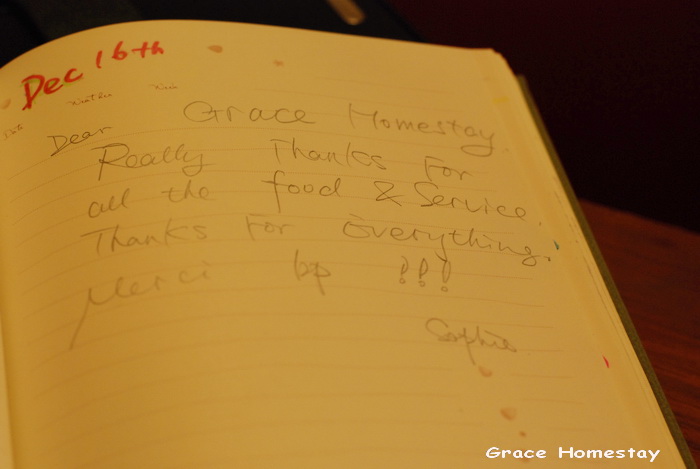 Dec 16th
Dear Grace Homestay
Really Thanks For
all the food & Service.
Thanks For Everything.
Merci bp !!!
Sophie
Grace Homestay